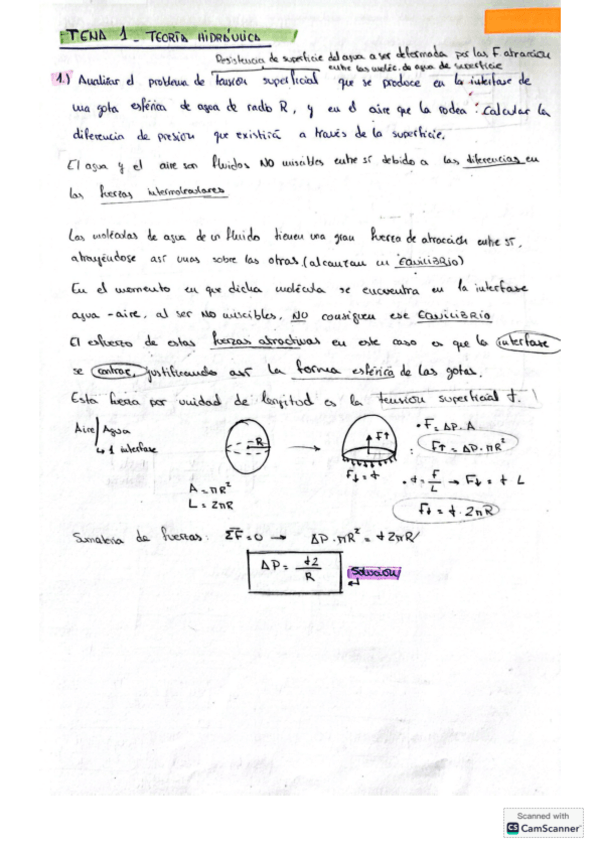 TEMA 1 - TEORÍA HIDRÁULICA
Resistencia de superficie del agua a ser deformada por las F atracción
entre las moléc. de agua de superficie
1.) Analizar el problema de tensión superficial que se produce en la interfase de
una gota esférica de agua de radio R, y en el aire que la rodea. Calcular la
diferencia de presión que existirá a través de la superficie.
El agua y el aire son fluidos NO miscibles entre sí debido a las diferencias en
las fuerzas intermoleculares
Las moléculas de agua de un fluido tienen una gran fuerza de atracción entre sí,
atrayéndose así unas sobre las otras (alcanzan un EQUILIBRIO)
En el momento en que dicha molécula se encuentra en la interfase
agua-aire, al ser NO miscibles, NO consiguen ese EQUILIBRIO
El esfuerzo de estas fuerzas atractivas en este caso es que la interfase
se contrae, justificando así la forma esférica de las gotas.
Esta fuerza por unidad de longitud es la tensión superficial t.
Aire/Agua
↳ 1 interfase
R
A = πR²
L = 2πR
→
F↑
F↓ = t
• F = ΔP·A
F↑ = ΔP·πR²
• t = F/L → F↓ = t L
F↓ = t·2πR
Sumatoria de fuerzas: ΣF = 0 → ΔP·πR² = t2πR
ΔP = t2/R
Solución
Scanned with
CS CamScanner